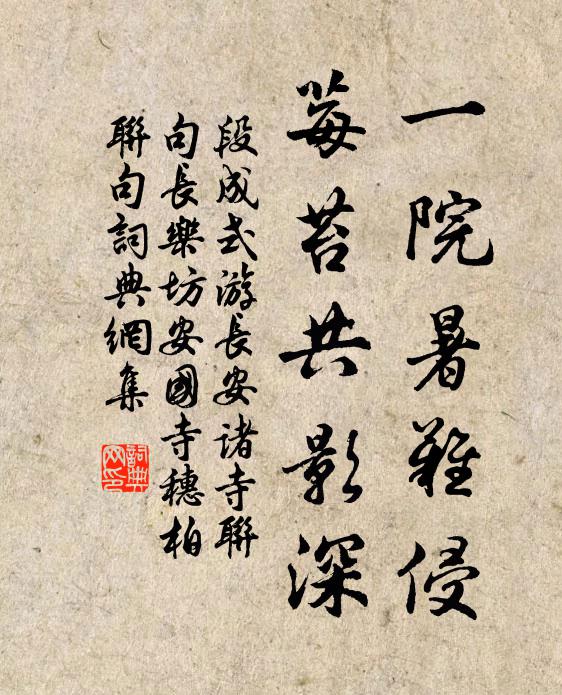 一院暑難侵
莓苔共影深
段成式游長安诸寺聯
句長樂坊安國寺穗柏
聯句詞典網集
詞典网印